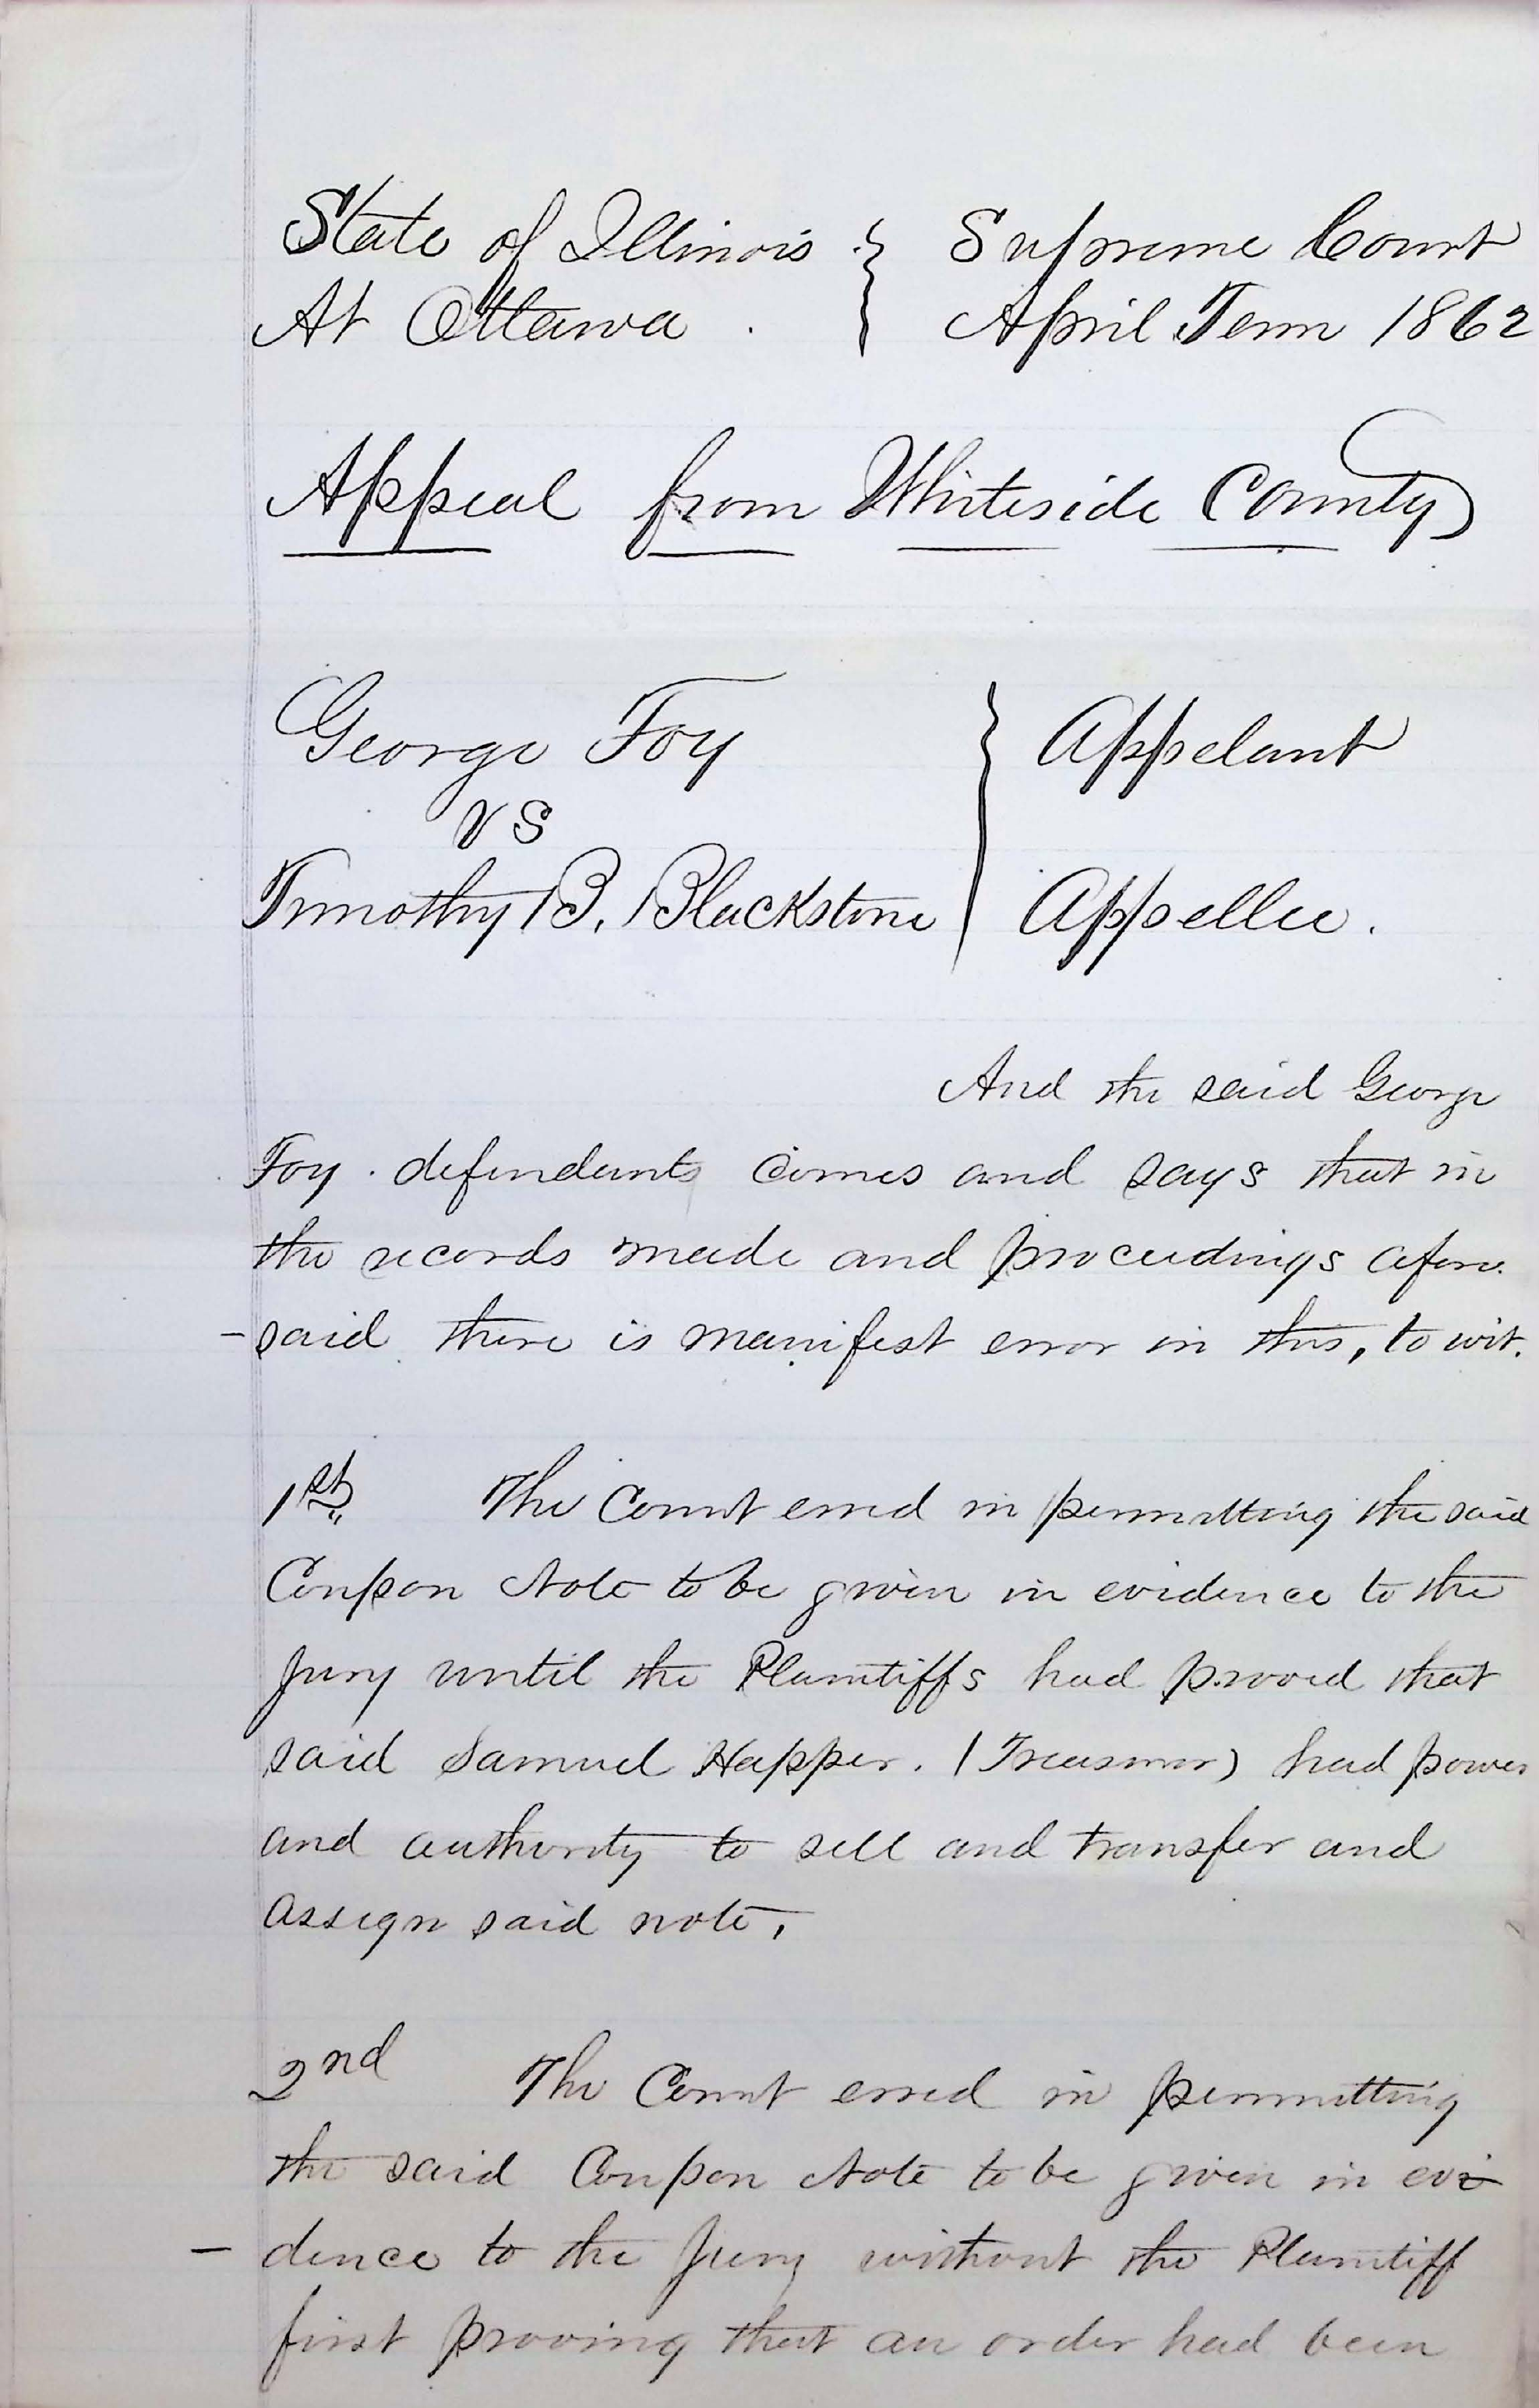 State of Illinois } Supreme Court
At Ottawa . } April Term 1862
Appeal from Whiteside County
George Foy } Appelant
vs
Timothy B. Blackstone } Appellee.
And the said George
Foy . defendants comes and says that in
the records made and proceedings afore.
- said there is manifest error in this, to wit.
1st The Court erred in permitting the said
Coupon Note to be given in evidence to the
Jury until the Plaintiffs had prooed that
said Samuel Happer. (Treasurer) had power
and authority to sell and transfer and
assign said note,
2nd The Court erred in permitting
the said Coupon Note to be given in evi
- dence to the Jury without the Plaintiff
first prooving that an order had been